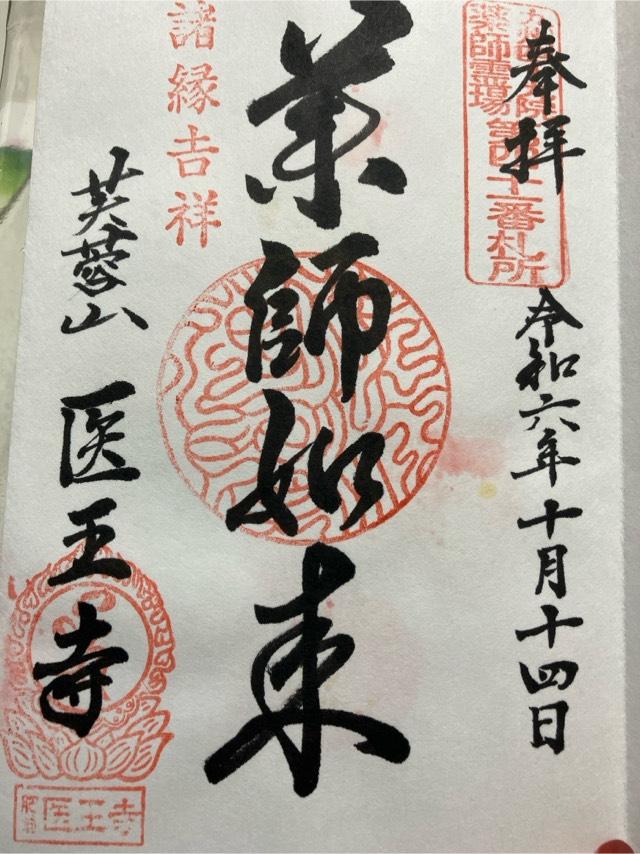 奉拝
薬師霊場
第四十一番札所
令和六年十月十四日
薬師如来
諸縁吉祥
芙蓉山 医王寺
肥前 医王寺